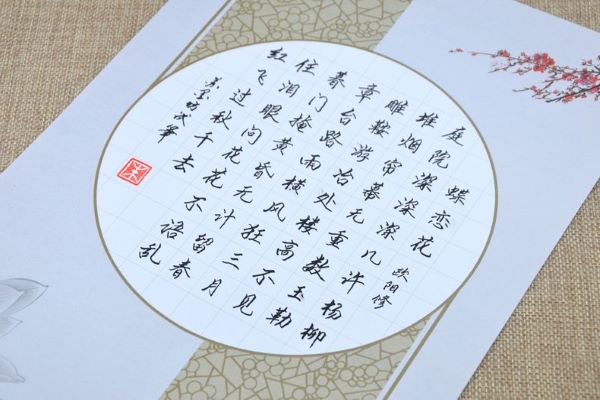 蝶恋花 欧阳修
庭院深深深几许杨柳
堆烟帘幕无重数玉勒
雕鞍游冶处楼高不见
章台路雨横风狂三月
暮门掩黄昏无计留春
住泪眼问花花不语乱
红飞过秋千去